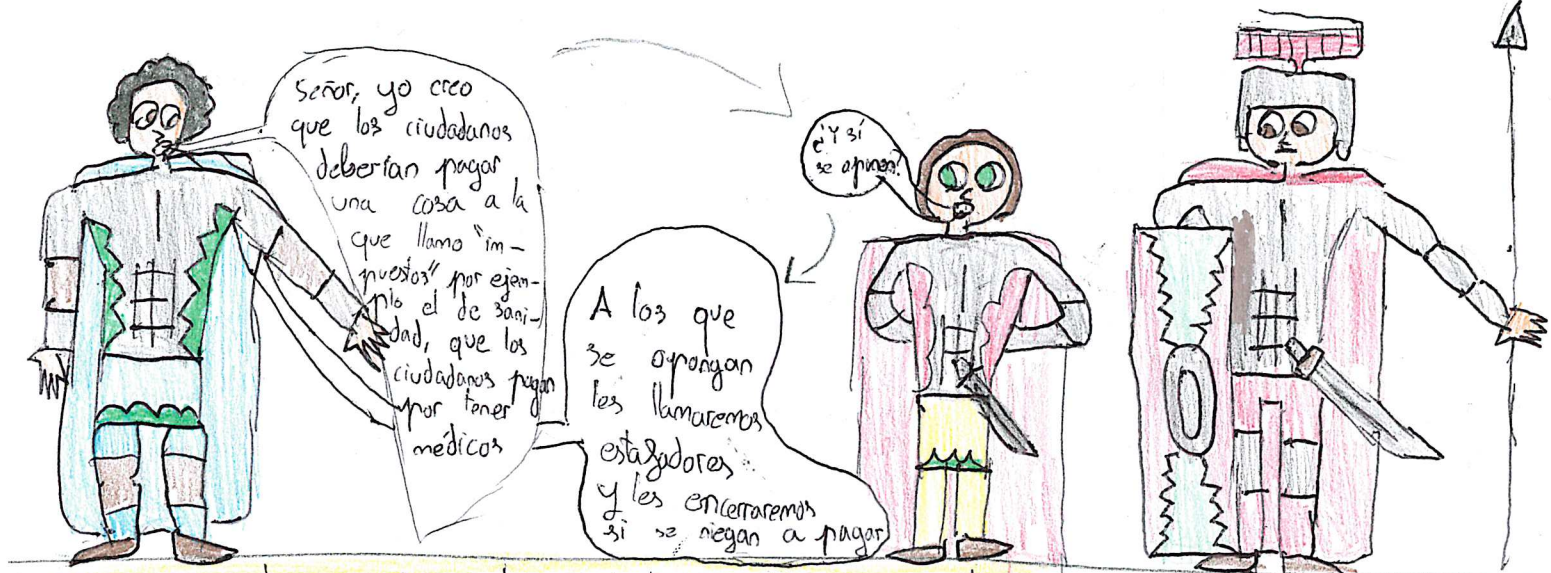 Señor, yo creo
que los ciudadanos
deberían pagar
una cosa a la
que llamo "im-
puestos" por ejem-
plo el de sani-
dad, que los
ciudadanos pagan
por tener
médicos
¿Y sí
se oponen?
A los que
se opongan
les llamaremos
estafadores
y les encerraremos
si se niegan a pagar